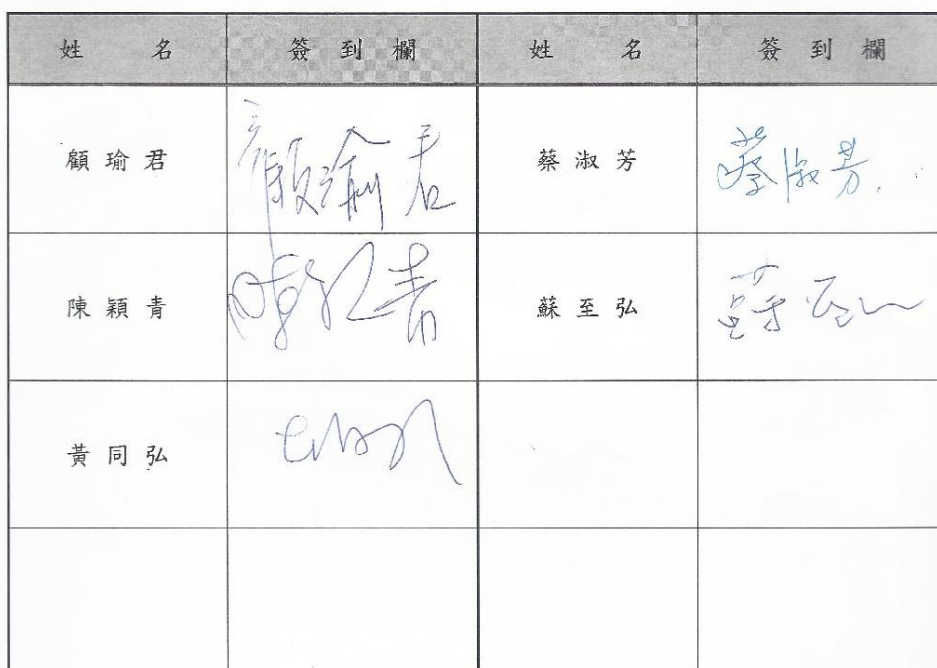 姓 名 簽 到 欄 姓 名 簽 到 欄
顧瑜君 顧瑜君 蔡淑芳 蔡淑芳
陳穎青 陳穎青 蘇至弘 蘇至弘
黃同弘